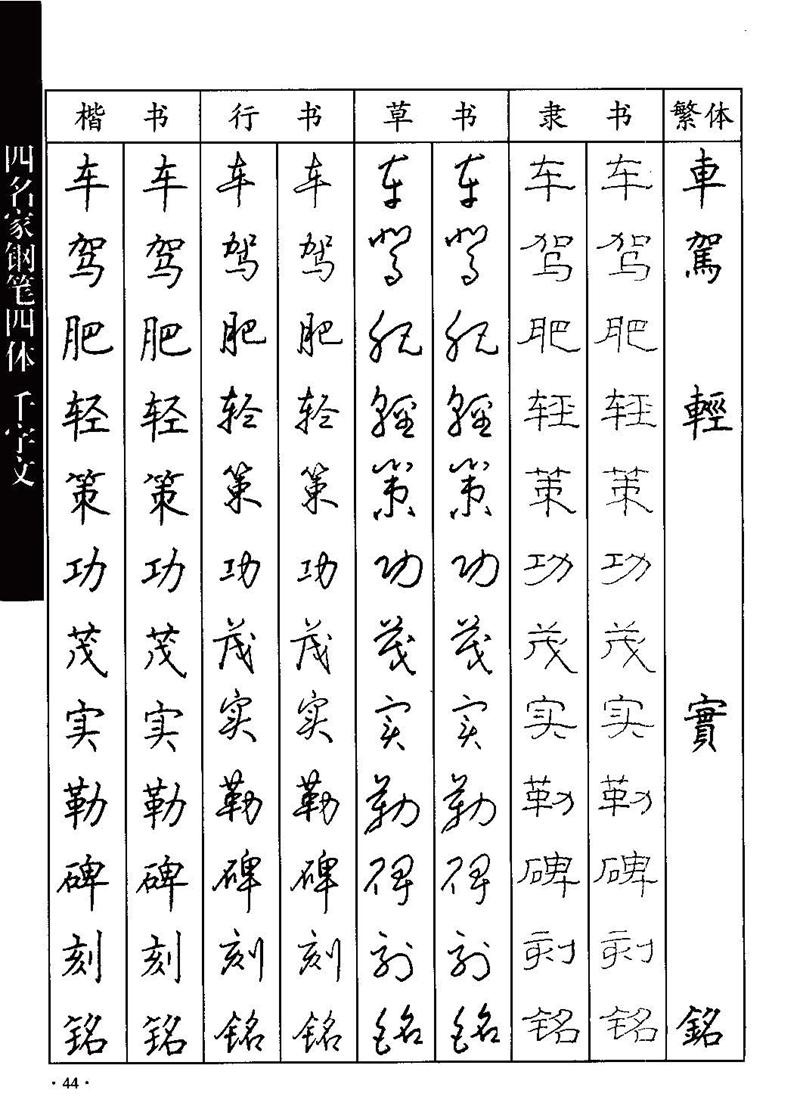 四名家钢笔四体 千字文
楷 书 行 书 草 书 隶 书 繁体
车 车 车 车 车 车 车 车 車
驾 驾 驾 驾 驾 驾 驾 驾 駕
肥 肥 肥 肥 肥 肥 肥 肥
轻 轻 轻 轻 轻 轻 轻 轻 輕
策 策 策 策 策 策 策 策
功 功 功 功 功 功 功 功
茂 茂 茂 茂 茂 茂 茂 茂
实 实 实 实 实 实 实 实 實
勒 勒 勒 勒 勒 勒 勒 勒
碑 碑 碑 碑 碑 碑 碑 碑
刻 刻 刻 刻 刻 刻 刻 刻
铭 铭 铭 铭 铭 铭 铭 铭 銘
·44·